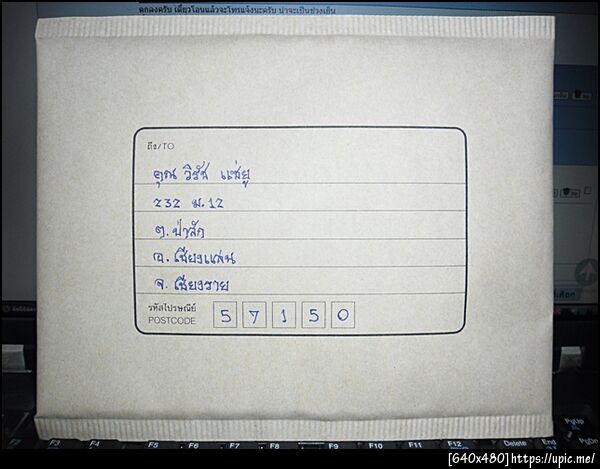 ตกลงครับ เดี๋ยวโอนแล้วจะโทรแจ้งนะครับ น่าจะเป็นช่วงเย็น
ถึง/TO
คุณ วิรัช แซ่ยู
232 ม.12
ต.ป่าสัก
อ.เชียงแสน
จ.เชียงราย
รหัสไปรษณีย์
POSTCODE
5 7 1 5 0
PgUp
PgDn
F5 F6 F7 F8 F9 F10 F11 F12 Delete End
[640x480]https://upic.me/